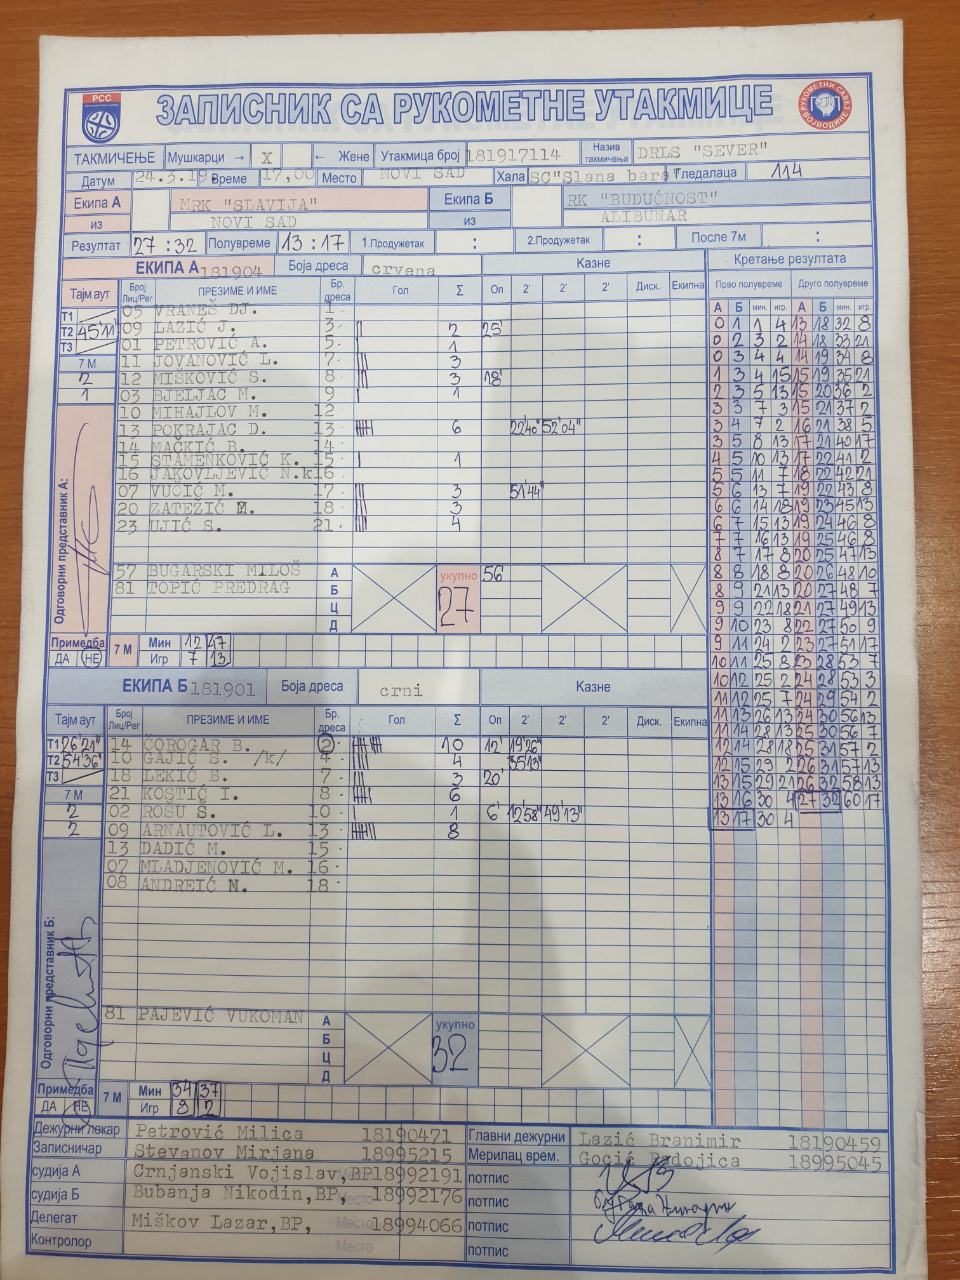 РСС
ЗАПИСНИК СА РУКОМЕТНЕ УТАКМИЦЕ
РУКОМЕТНИ САВЕЗ ВОЈВОДИНЕ
ТАКМИЧЕЊЕ Мушкарци → X ← Жене Утакмица број 181917114 Назив такмичења DRLS "SEVER"
Датум 24.3.19. Време 17,00 Место NOVI SAD Хала SC"Slana bara" Гледалаца 114
Екипа А MRK "SLAVIJA" Екипа Б RK "BUDUĆNOST"
из NOVI SAD из ALIBUNAR
Резултат 27 : 32 Полувреме 13 : 17 1.Продужетак : 2.Продужетак : После 7м :
ЕКИПА А 181904 Боја дреса crvena Казне Кретање резултата
Тајм аут Број Лиц/Рег ПРЕЗИМЕ И ИМЕ Бр. дреса Гол Σ Оп 2' 2' 2' Диск. Екипна Прво полувреме Друго полувреме
А Б мин. игр. А Б мин. игр.
Т1 05 VRANEŠ DJ. 1
Т2 45'11" 09 LAZIĆ J. 3 2 25'
Т3 01 PETROVIĆ A. 5 1
7 М 11 JOVANOVIĆ L. 7 3
2 12 MIŠKOVIĆ S. 8 3 18'
1 03 BJELJAC M. 9 1
10 MIHAJLOV M. 12
13 POKRAJAC D. 13 6 22'40" 52'04"
14 MAČKIĆ B. 14
15 STAMENKOVIĆ K. 15 1
16 JAKOVLJEVIĆ N.k16
07 VUČIĆ M. 17 3 51'44"
20 ZATEŽIĆ M. 18 3
23 UJIĆ S. 21 4
57 BUGARSKI MILOŠ А укупно 56'
81 TOPIĆ PREDRAG Б 27
Ц
Д
Одговорни представник А:
Примедба 7 М Мин 12 47
ДА НЕ Игр 7 13
ЕКИПА Б 181901 Боја дреса crni Казне
Тајм аут Број Лиц/Рег ПРЕЗИМЕ И ИМЕ Бр. дреса Гол Σ Оп 2' 2' 2' Диск. Екипна
Т1 26'21" 14 ČOROGAR B. 2 10 12' 19'26"
Т2 54'36" 10 GAJIĆ S. /k/ 4 4 35'13"
Т3 18 LEKIĆ B. 7 3 20'
7 М 21 KOSTIĆ I. 8 6
2 02 ROSU S. 10 1 6' 12'58" 49'13"
2 09 ARNAUTOVIĆ L. 13 8
13 DADIĆ M. 15
07 MLADJENOVIĆ M. 16
08 ANDREIĆ M. 18
81 PAJEVIĆ VUKOMAN А укупно
Б 32
Ц
Д
Одговорни представник Б:
Примедба 7 М Мин 34 37
ДА НЕ Игр 8 2
0 1 1 4 13 18 32 8
0 2 3 2 14 18 33 21
0 3 4 4 14 19 34 8
1 3 4 15 15 19 35 21
2 3 5 13 15 20 36 2
3 3 7 3 15 21 37 2
3 4 7 2 16 21 38 5
3 5 8 13 17 21 40 17
4 5 10 13 17 22 41 2
5 5 11 7 18 22 42 21
5 6 13 7 19 22 43 8
6 6 14 18 19 23 45 13
6 7 15 13 19 24 46 8
7 7 16 13 19 25 46 8
8 7 17 8 20 25 47 13
8 8 18 8 20 26 48 10
8 9 21 13 20 27 48 7
9 9 22 18 21 27 49 13
9 10 23 8 22 27 50 9
9 11 24 2 23 27 51 17
10 11 25 8 23 28 53 7
10 12 25 2 24 28 53 3
11 12 25 7 24 29 54 2
11 13 26 13 24 30 56 13
11 14 28 13 25 30 56 7
12 14 28 18 25 31 57 2
12 15 29 2 26 31 57 13
13 15 29 21 26 32 58 13
13 16 30 4 27 32 60 17
13 17 30 4
Дежурни лекар Petrović Milica 18190471 Главни дежурни Lazić Branimir 18190459
Записничар Stevanov Mirjana 18995215 Мерилац врем. Gocić Radojica 18995045
судија А Crnjanski Vojislav,BP 18992191 потпис
судија Б Bubanja Nikodin,BP, Место 18992176 потпис
Делегат Miškov Lazar,BP, Место 18994066 потпис
Контролор Место потпис